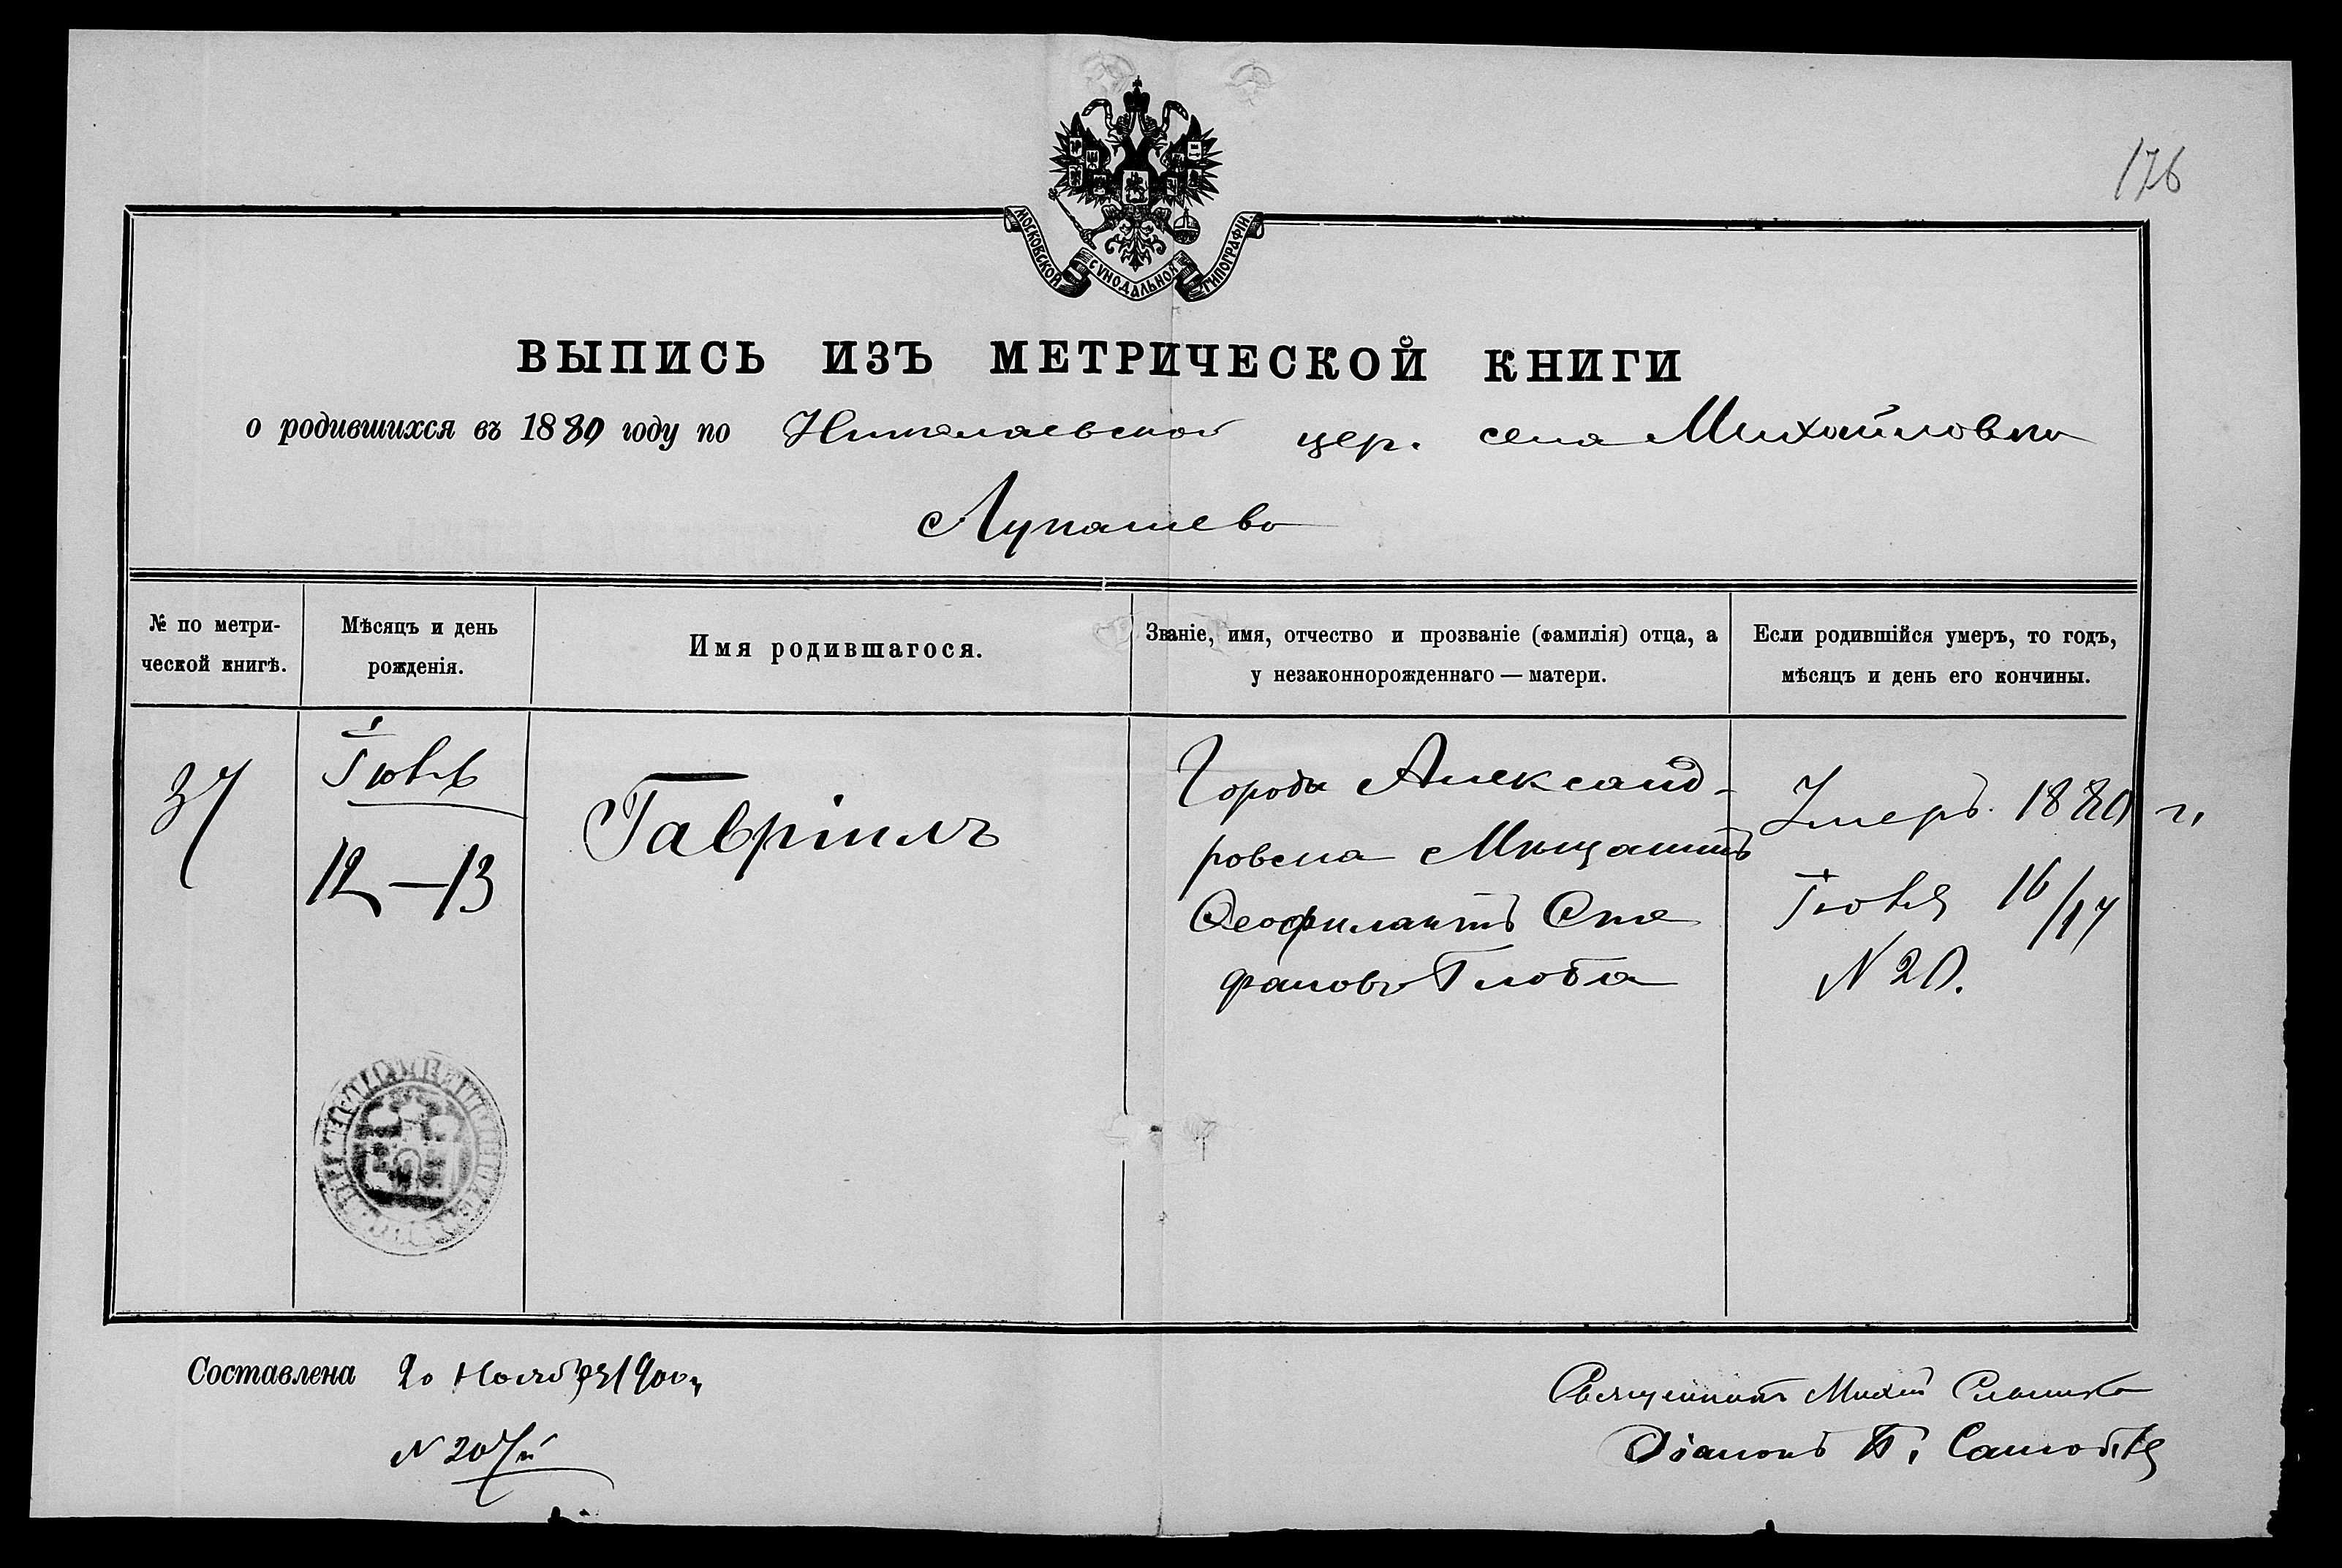 176
МОСКОВСКОЙ СѴНОДАЛЬНОЙ ТИПОГРАФІИ.
ВЫПИСЬ ИЗЪ МЕТРИЧЕСКОЙ КНИГИ
о родившихся въ 1880 году по Николаевской цер. села Михайловка
Лукашево
№ по метри-
ческой книгѣ.
Мѣсяцъ и день
рожденія.
Имя родившагося.
Званіе, имя, отчество и прозваніе (фамилія) отца, а
у незаконнорожденнаго — матери.
Если родившійся умеръ, то годъ,
мѣсяцъ и день его кончины.
37
12—13
Гавріилъ
Города Александ-
ровска Мещанинъ
Феофилактъ Сте
фановъ Глоба
Умеръ 1880 г.
16/17
N 20.
Составлена 20 Ноября 1900 г.
N 207й
Священникъ
Діаконъ